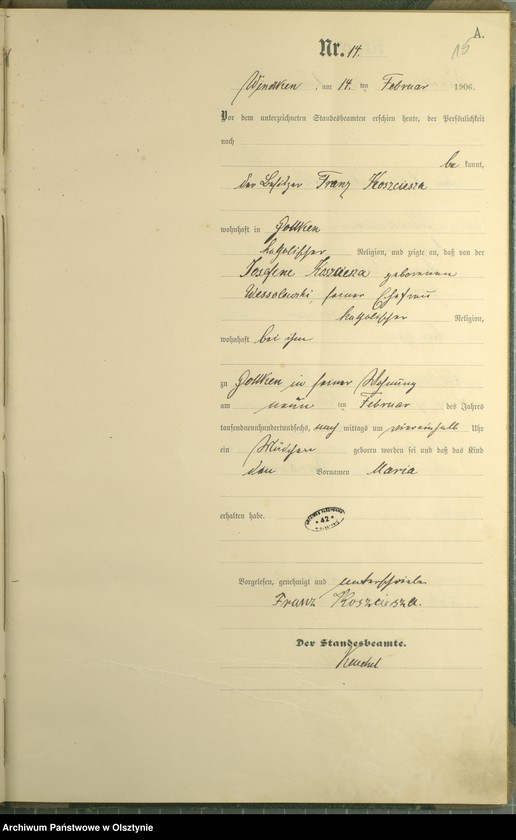 A.
15
Nr. 14.
Windtken, am 14 ten Februar 1906.
Vor dem unterzeichneten Standesbeamten erschien heute, der Persönlichkeit
nach
be kannt,
der Besitzer Franz Koszciesza
wohnhaft in Gottken
katholischer Religion, und zeigte an, daß von der
Josefine Koszciesza geborenen
Wessolowski, seiner Ehefrau
katholischer Religion,
wohnhaft bei ihm
zu Gottken in seiner Wohnung
am neun ten Februar des Jahres
tausendneunhundertundsechs, nach mittags um viereinhalb Uhr
ein Mädchen geboren worden sei und daß das Kind
den Vornamen Maria
erhalten habe.
42
Vorgelesen, genehmigt und unterschrieben
Franz Koszciesza.
Der Standesbeamte.
Archiwum Państwowe w Olsztynie